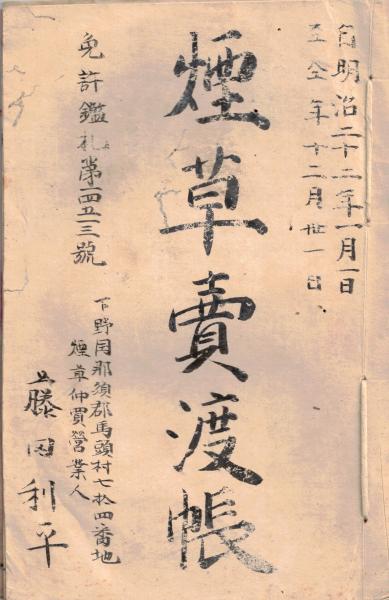 自明治二十二年一月一日
至仝年十二月丗一日
煙草賣渡帳
免許鑑札第一四五一三號
下野国那須郡馬頭村七拾四番地
煙草仲買營業人
藤田利平